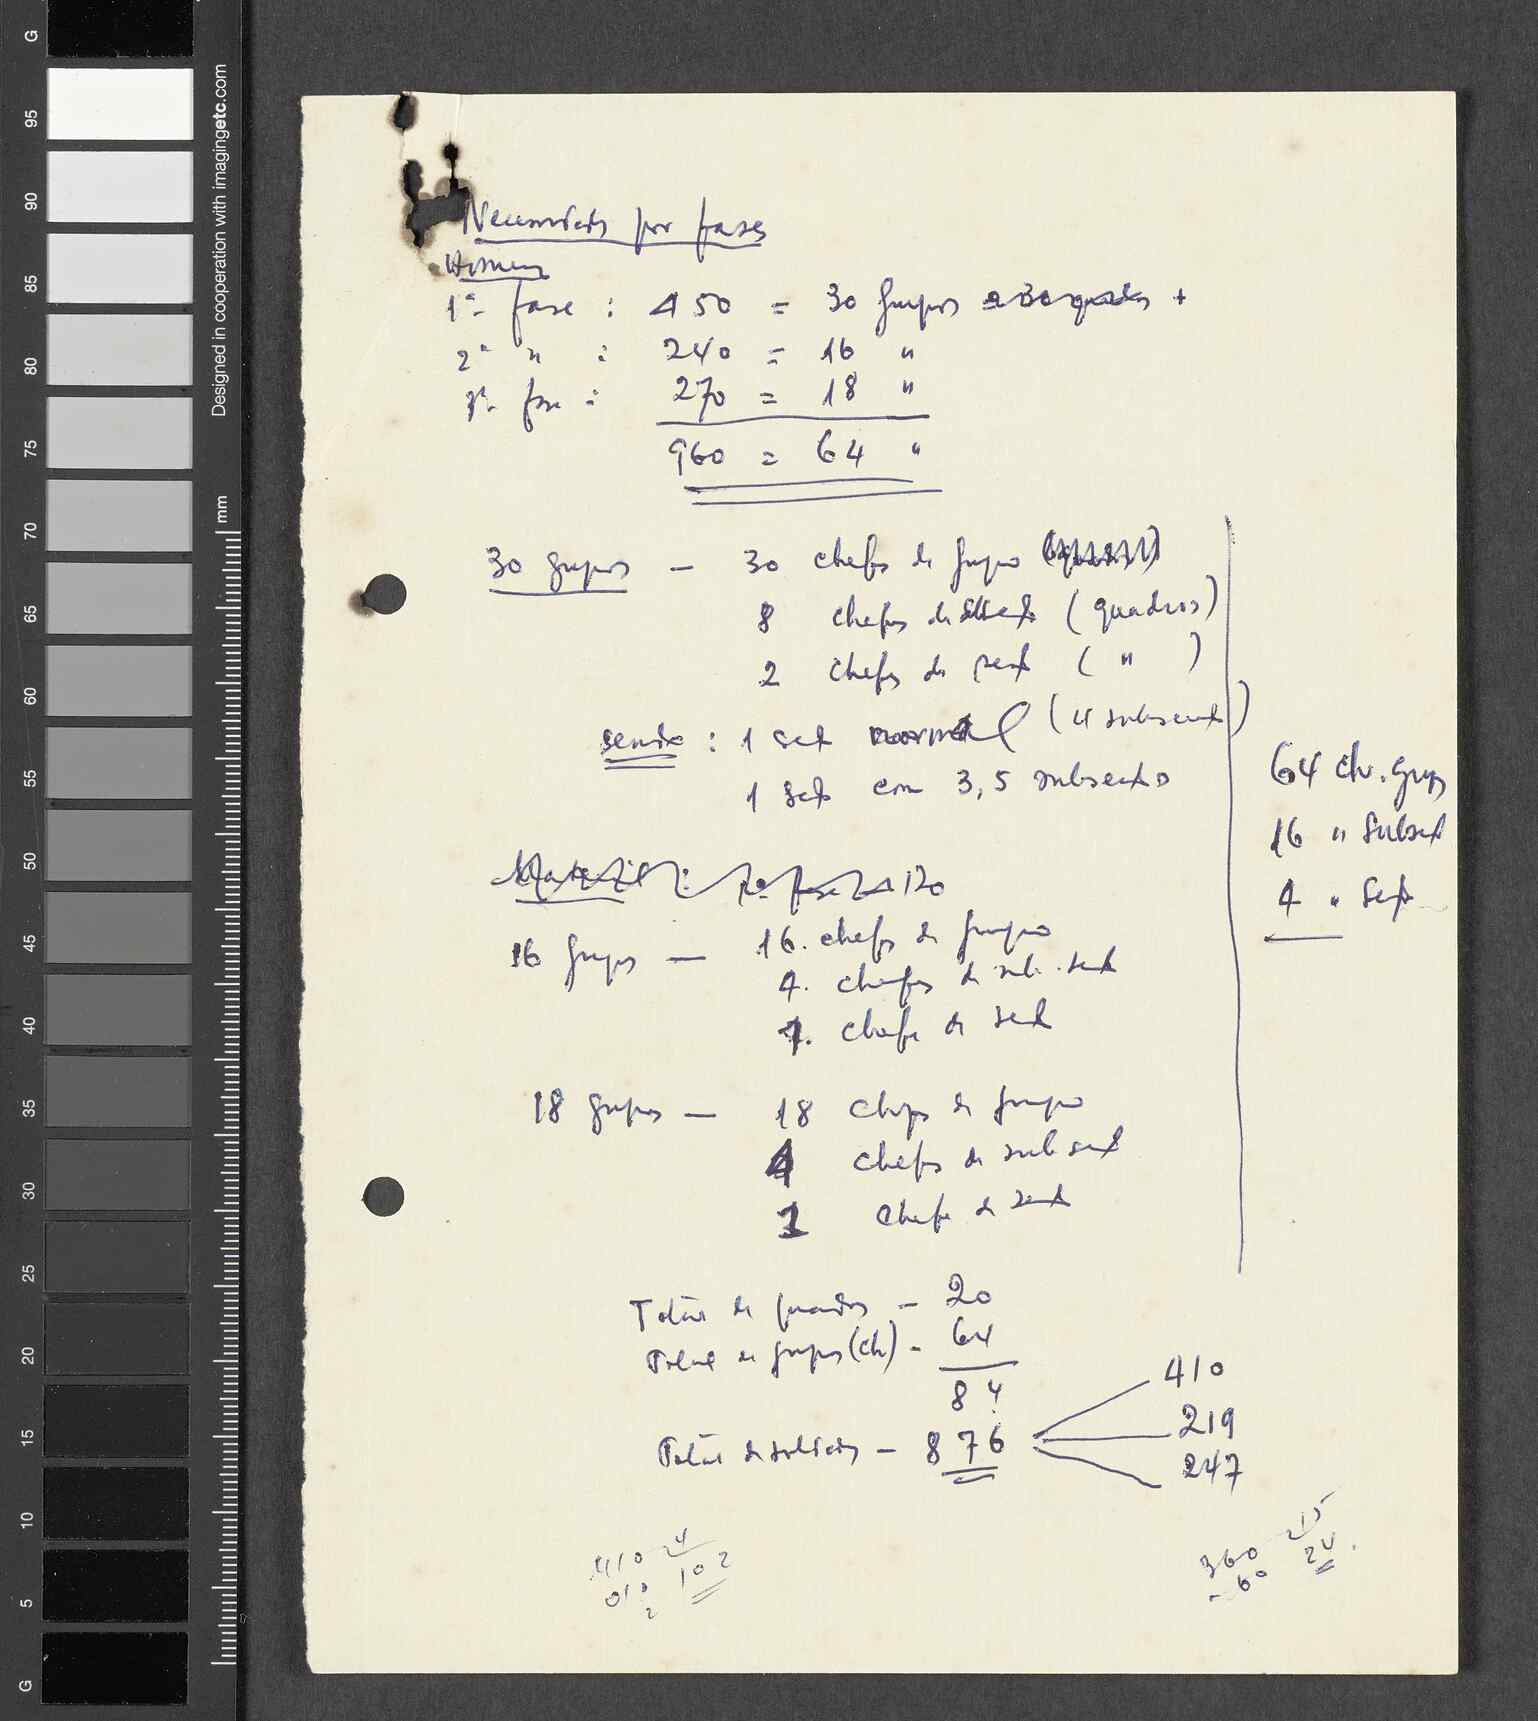 G
95
90
85
80
75
70
65
60
55
50
45
40
35
30
25
20
15
10
5
G
Designed in cooperation with imagingetc.com
mm
Necessidades por fases
Homens
1ª fase : 450 = 30 grupos +
2ª " : 240 = 16 "
3ª fase : 270 = 18 "
960 = 64 "
30 grupos — 30 chefes de grupo
8 chefes de (quadros)
2 chefes de sect (")
sendo : 1 sect normal (4 subsect)
1 sect com 3,5 subsectos
Material : 1ª fase 120
16 grupos — 16. chefes de grupo
4. chefes de sub. sect
1. chefe de sect
18 grupos — 18 chefs de grupo
4 chefes de subsect
1 chefe de sect
64 ch. grup
16 " Subsect
4 " Sect
Total de quadros — 20
Total de grupos (ch) - 64
84
Total de soldados — 876
410
219
247
410 4
010 102
2
360 15
- 60 24